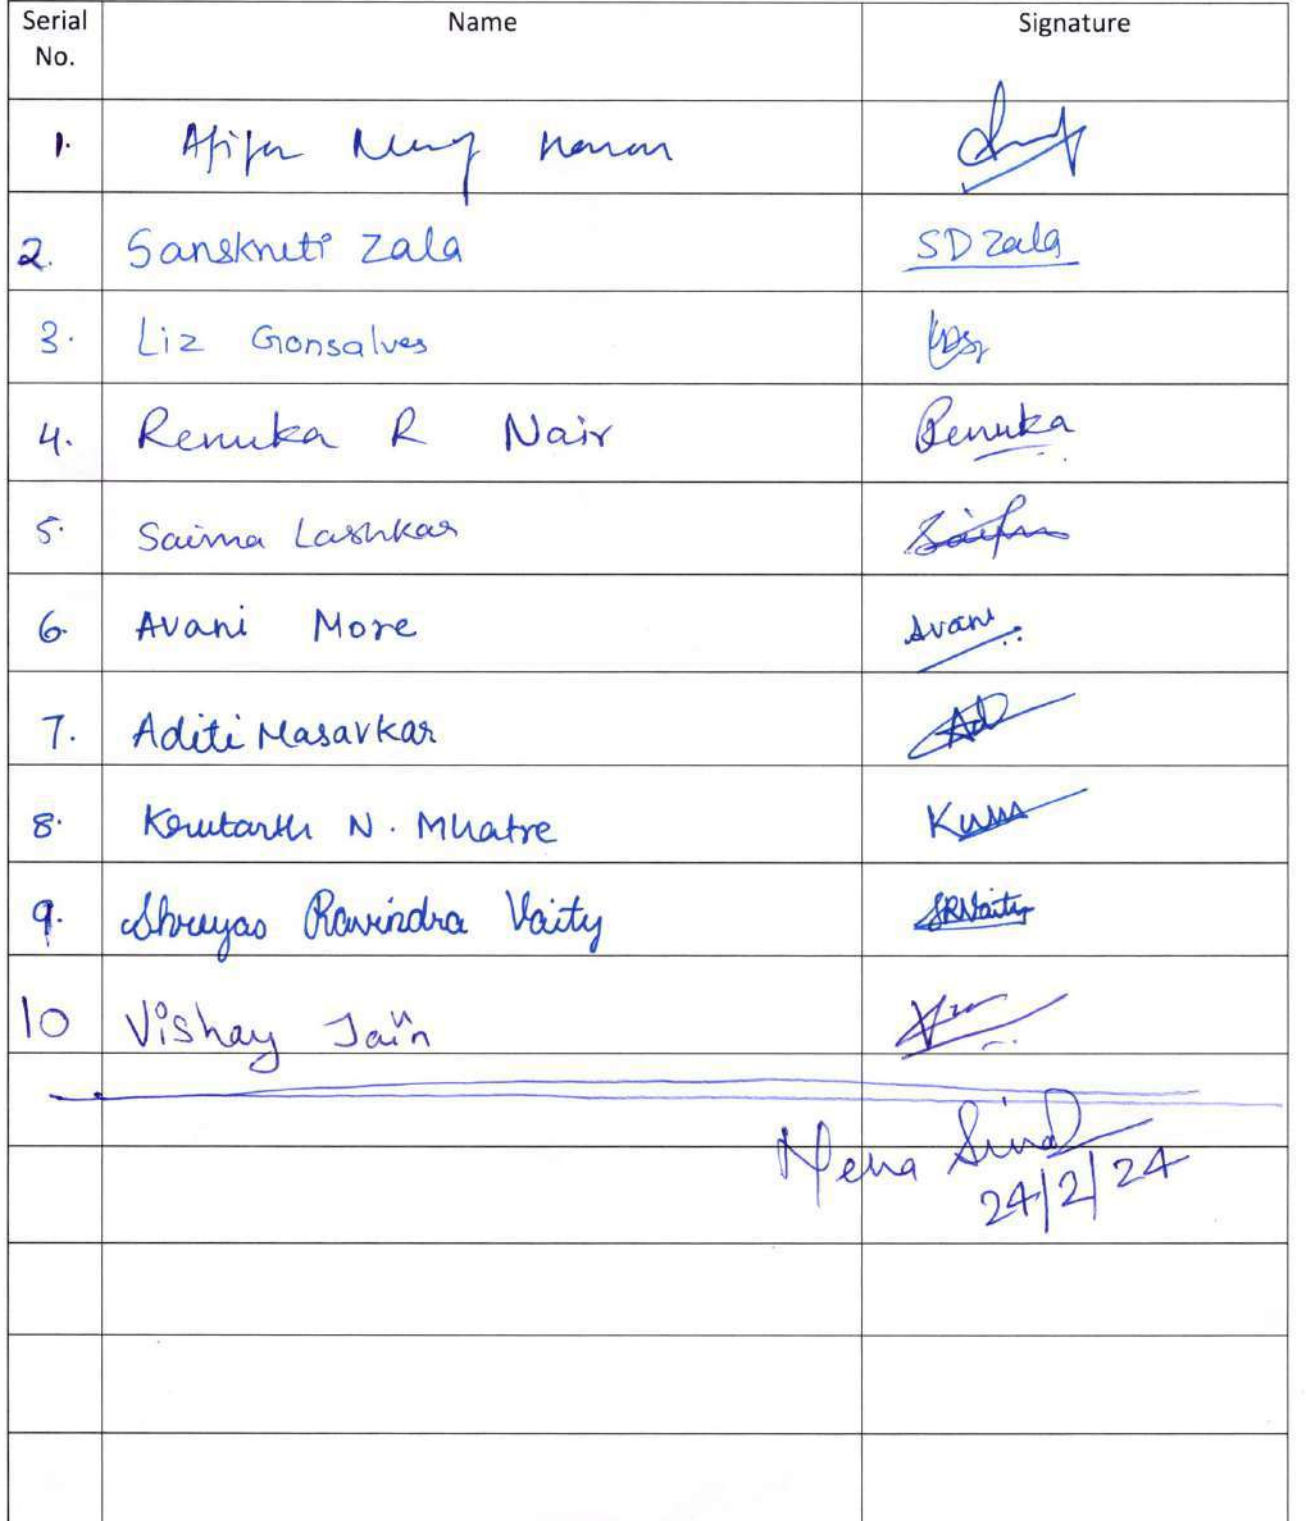 Serial No. Name Signature
1. Afifa
2. Sanskruti Zala SD Zala
3. Liz Gonsalves
4. Renuka R Nair Renuka
5. Saima Lashkar
6. Avani More Avani
7. Aditi Masavkar
8. N. Mhatre
9. Shreyas Ravindra Vaity SRVaity
10 Vishay Jain
24/2/24